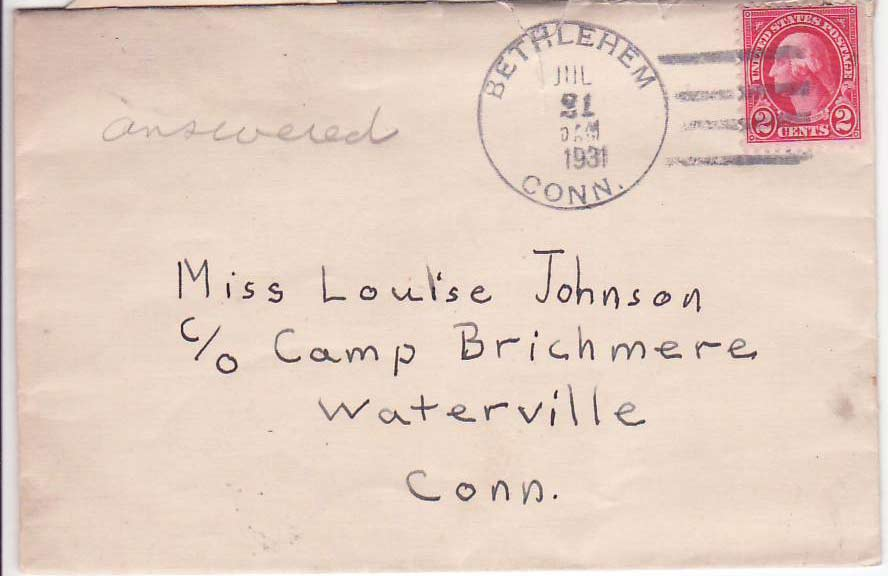 BETHLEHEM
JUL
21
AM
1931
CONN.
UNITED STATES POSTAGE
2 CENTS 2
answered
Miss Louise Johnson
c/o Camp Brichmere
Waterville
Conn.